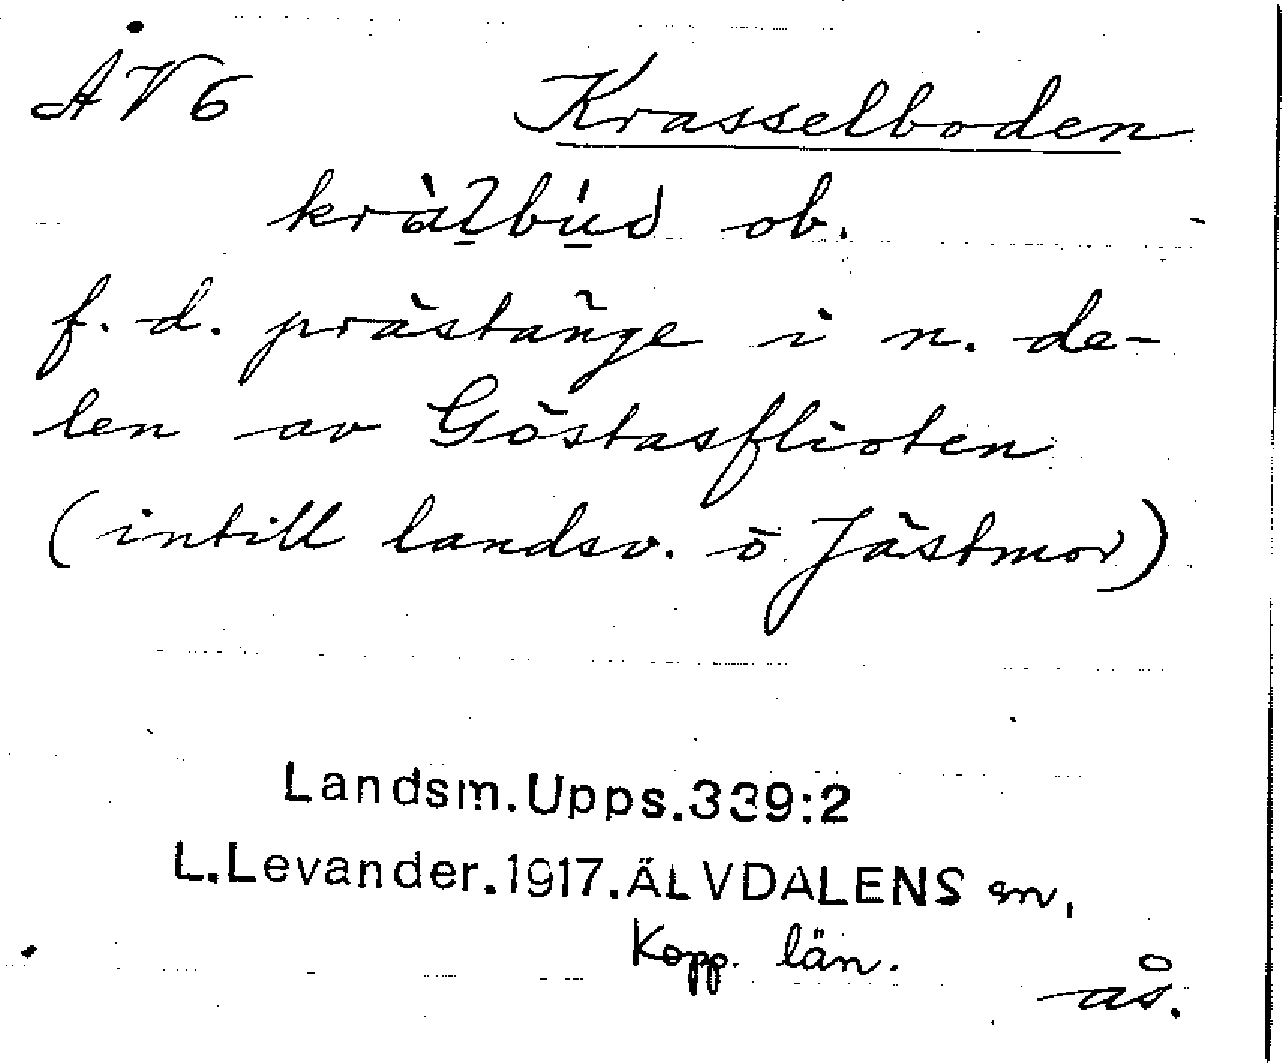 ÅV6 Krasselboden
f. d. prästänge i n. de-
len av Göstasflioten
(intill landsv. ö Jästmor)
Landsm.Upps.339:2
L.Levander.1917.ÄLVDALENS sn,
Kopp. län.
ås.